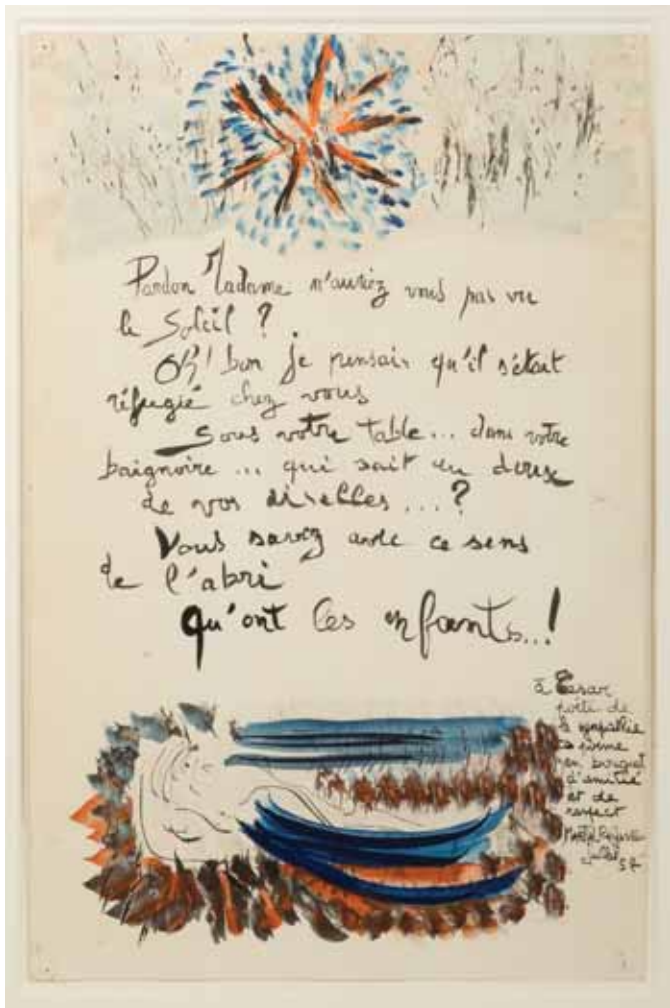 Pardon Madame n'auriez vous pas vu
le Soleil ?
Oh! bon je pensais qu'il s'était
réfugié chez vous
Sous votre table... dans votre
baignoire ... qui sait en
de vos aisselles ...?
Vous savez avec ce sens
de l'abri
qu'ont les enfants...!
à César
poète de
la
ce poème
en bouquet
d'amitié
et de
respect
juillet